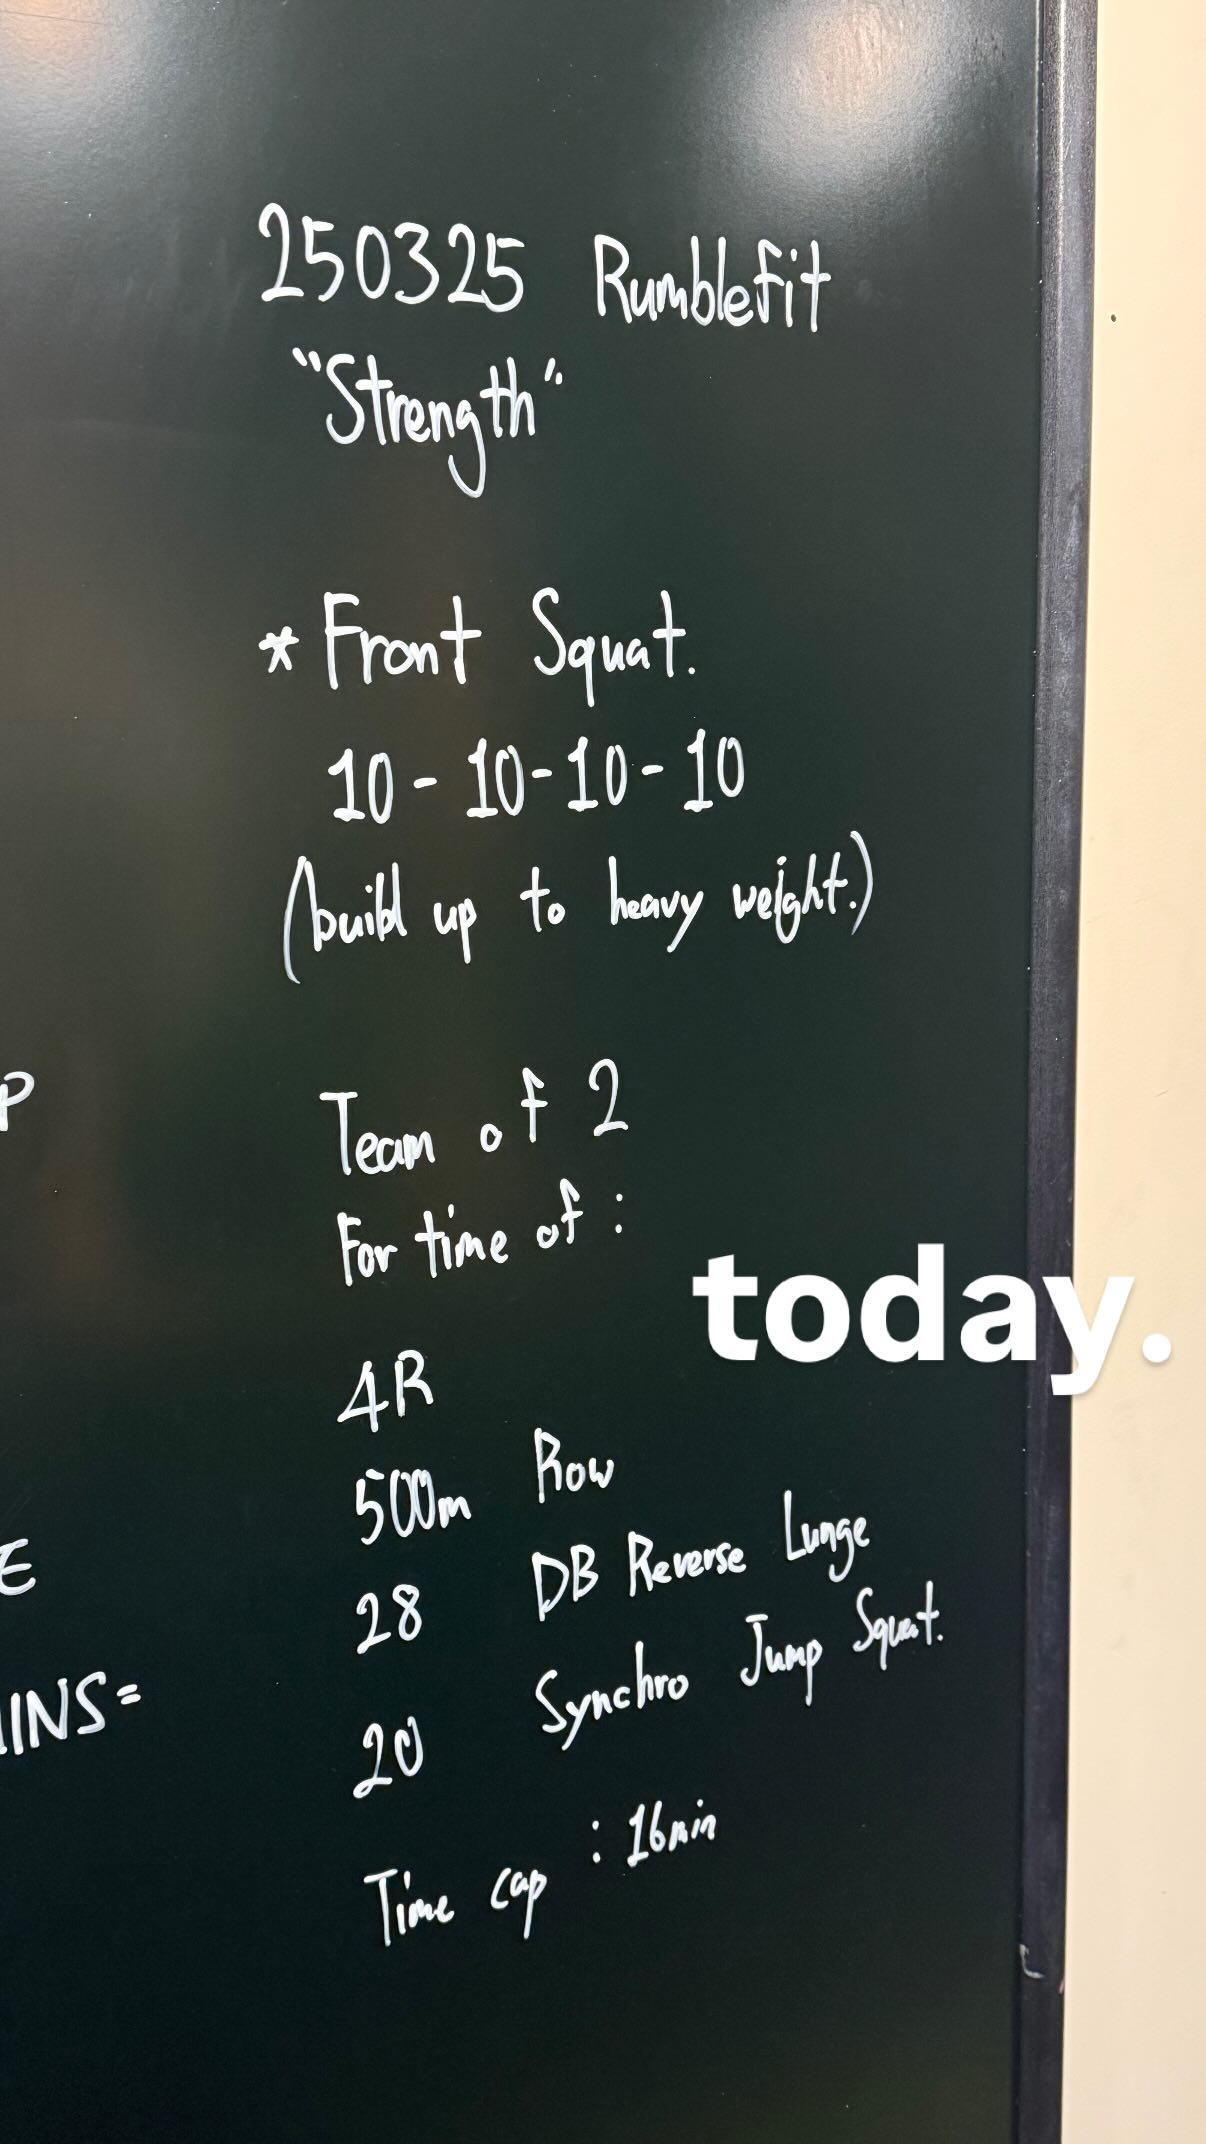 250325 Rumblefit
"Strength"
* Front Squat.
10 - 10 - 10 - 10
(build up to heavy weight.)
Team of 2
For time of :
today.
4R
500m Row
28 DB Reverse Lunge
20 Synchro Jump Squat.
Time cap : 16min
P
E
INS=